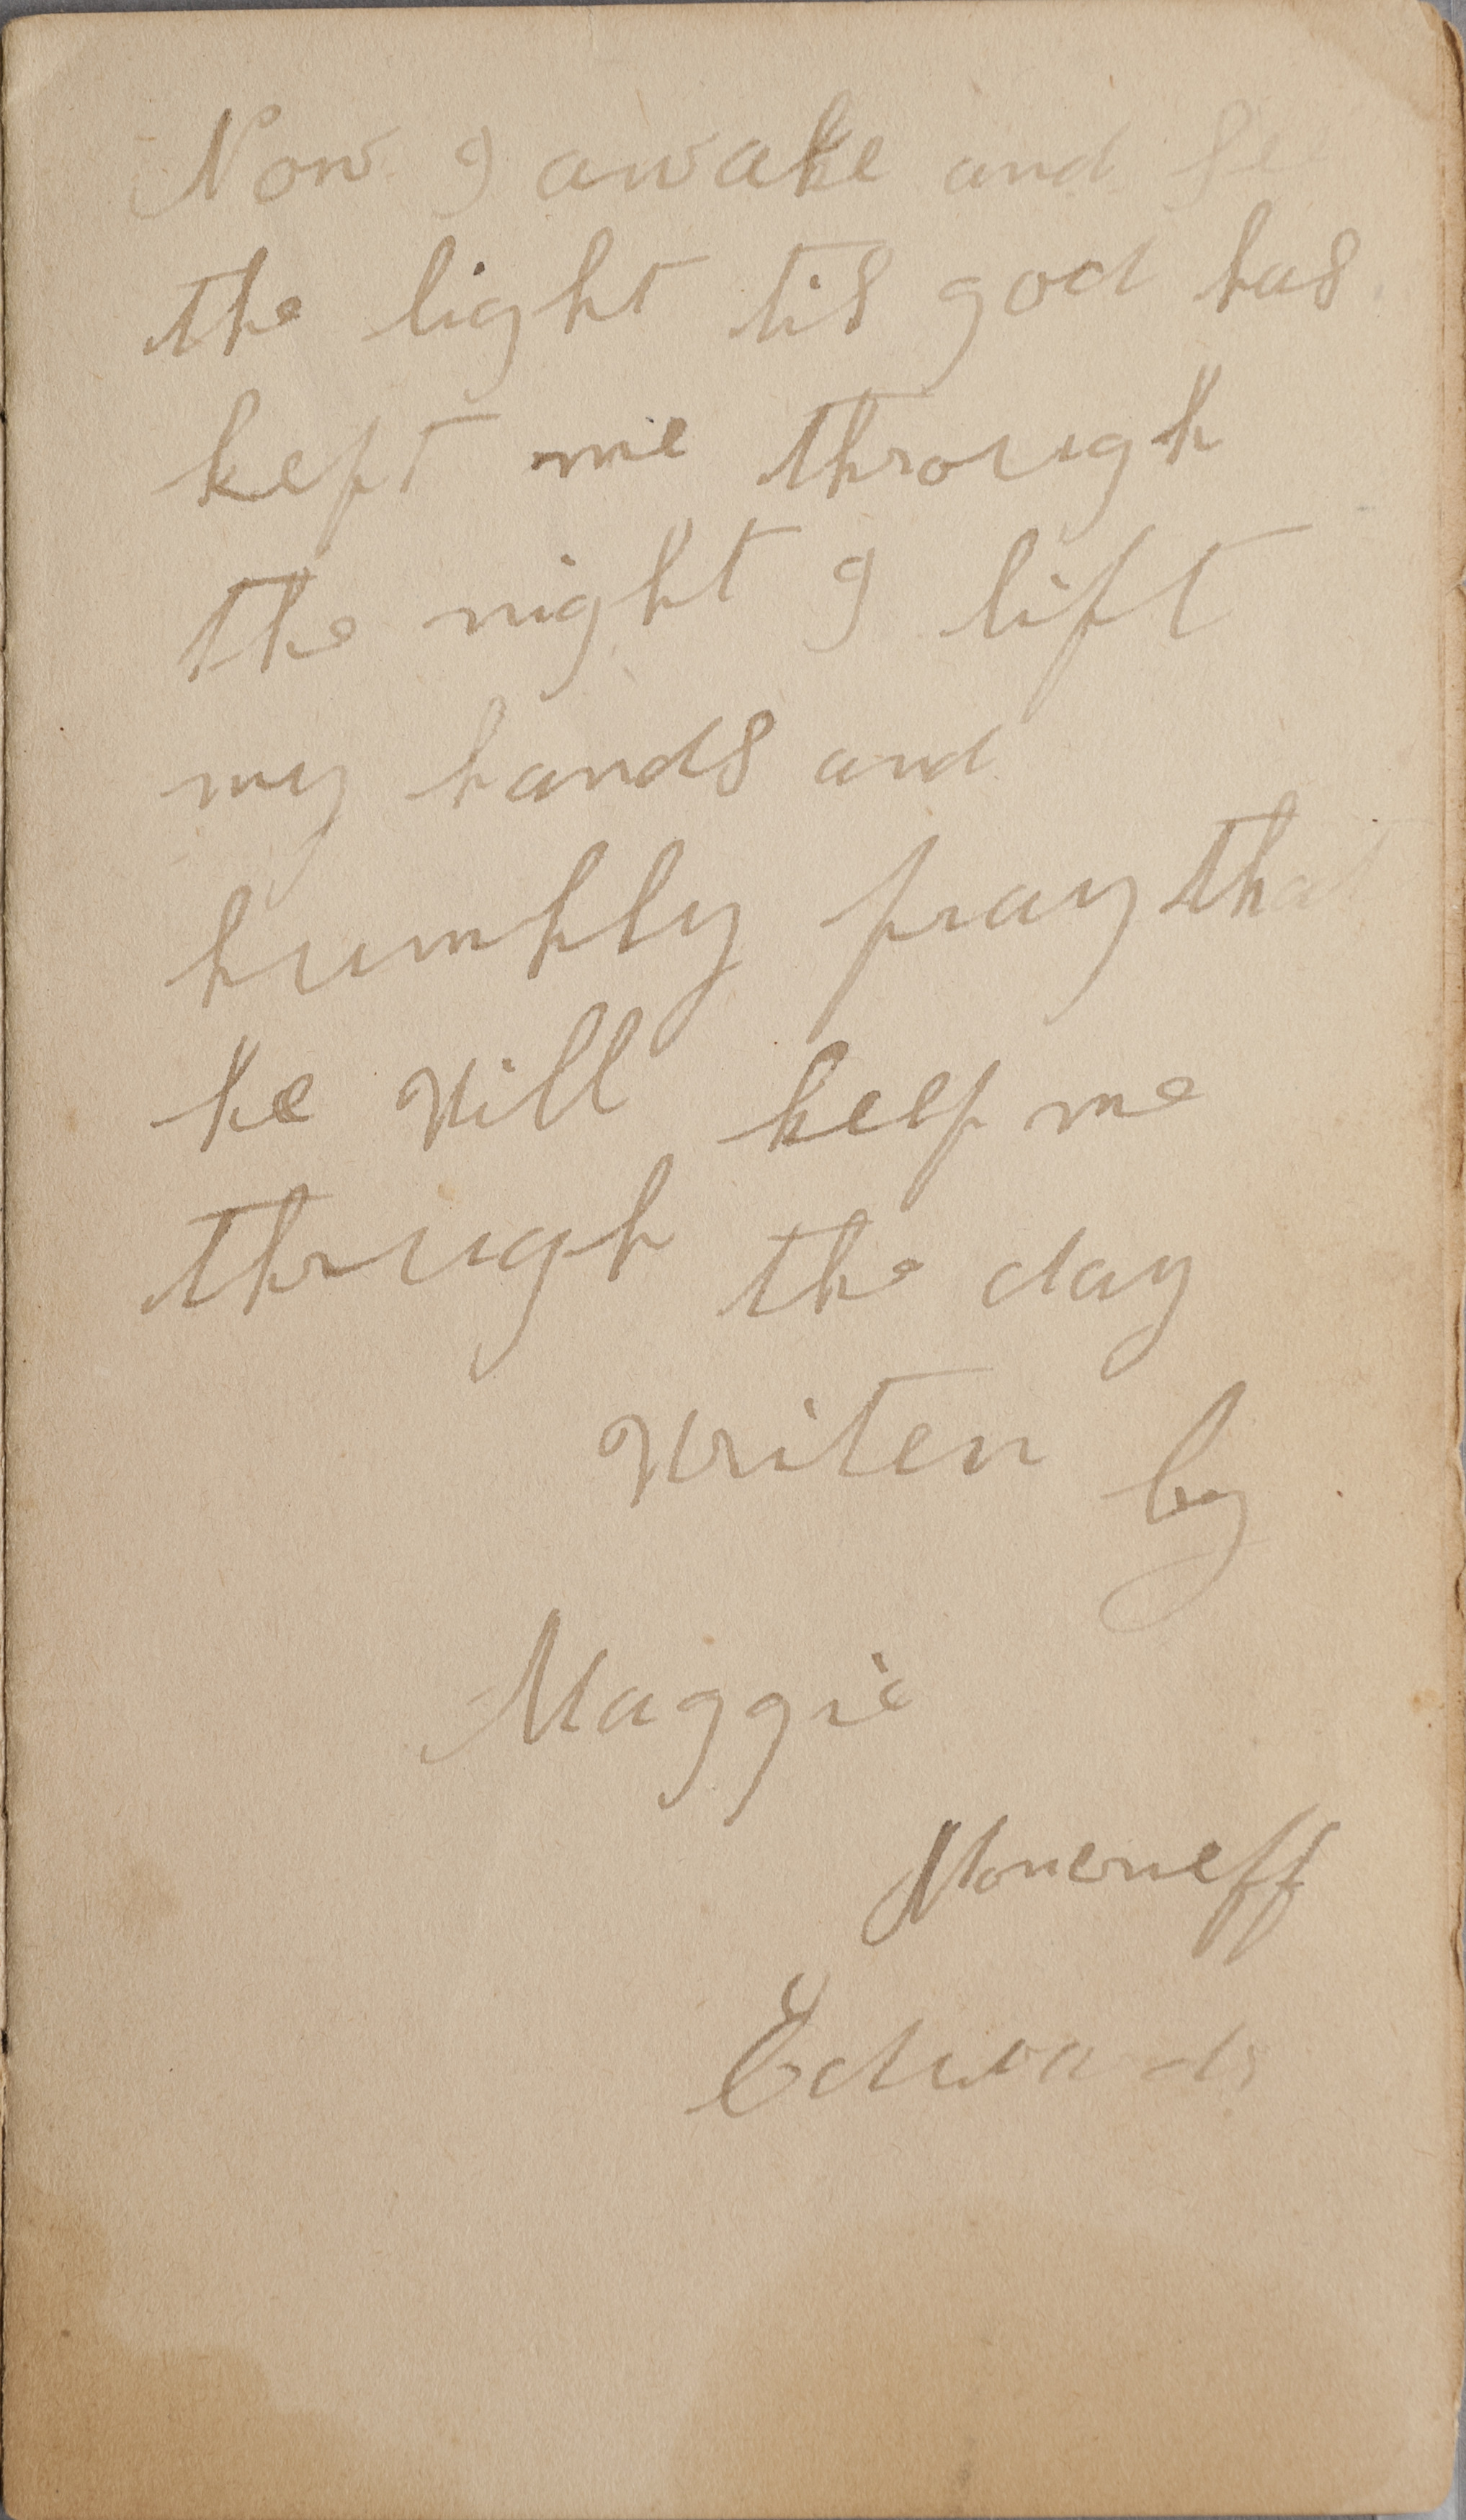 Now I awake and se
the light tis god has
kept me through
the night I lift
my hands and
humbly pray that
he will keep me
through the day
writen by
Maggie
Edwards